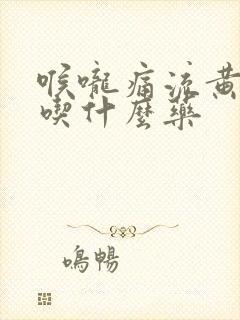 喉嚨痛流黃
喫什麼藥
鳴暢